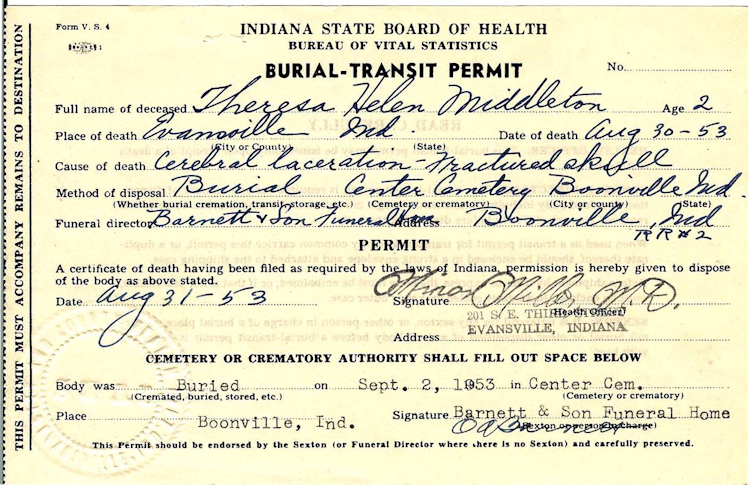 Form V. S. 4
INDIANA STATE BOARD OF HEALTH
BUREAU OF VITAL STATISTICS
BURIAL-TRANSIT PERMIT
No.
Full name of deceased Theresa Helen Middleton Age 2
Place of death Evansville Ind. Date of death Aug 30-53
(City or County) (State)
Cause of death Cerebral laceration - Fractured skull
Method of disposal Burial Center Cemetery Boonville Ind.
(Whether burial cremation, transit storage, etc.) (Cemetery or crematory) (City or county) (State)
Funeral director Barnett & Son Funeral Home Address Boonville, Ind
RR#2
PERMIT
A certificate of death having been filed as required by the laws of Indiana, permission is hereby given to dispose
of the body as above stated.
Date Aug 31-53 Signature Minor Miller, M.D.
(Health Officer)
201 S. E. THIRD ST.
EVANSVILLE, INDIANA
Address
CEMETERY OR CREMATORY AUTHORITY SHALL FILL OUT SPACE BELOW
Body was Buried on Sept. 2, 1953 in Center Cem.
(Cremated, buried, stored, etc.) (Cemetery or crematory)
Place Boonville, Ind. Signature Barnett & Son Funeral Home
(Sexton or person in charge)
This Permit should be endorsed by the Sexton (or Funeral Director where there is no Sexton) and carefully preserved.
THIS PERMIT MUST ACCOMPANY REMAINS TO DESTINATION